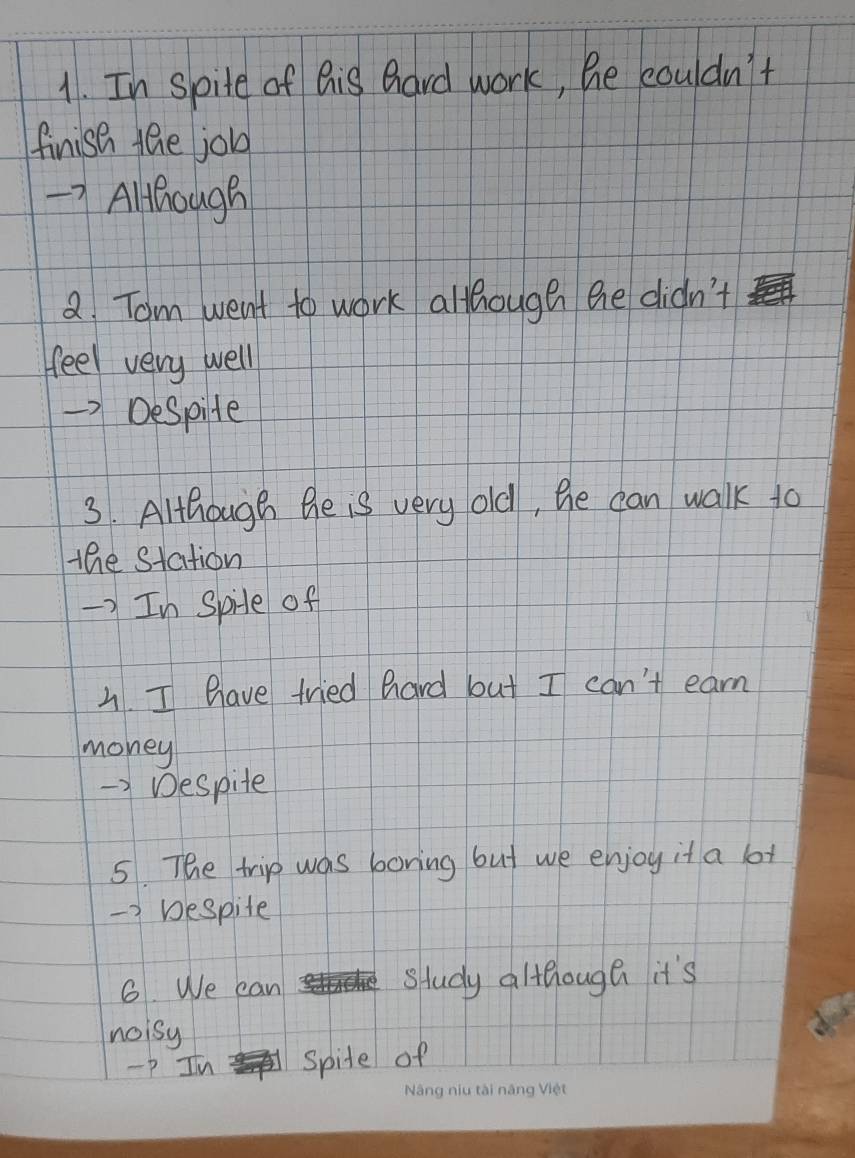 1. In spite of his hard work, he couldn't
finish the job
→ Although
2. Tom went to work although he didn't
feel very well
→ Despite
3. Although he is very old, he can walk to
the station
→ In spite of
4. I have tried hard but I can't earn
money
→ Despite
5. The trip was boring but we enjoy it a lot
→ Despite
6. We can study although it's
noisy
→ In spite of
Nâng niu tài năng Việt